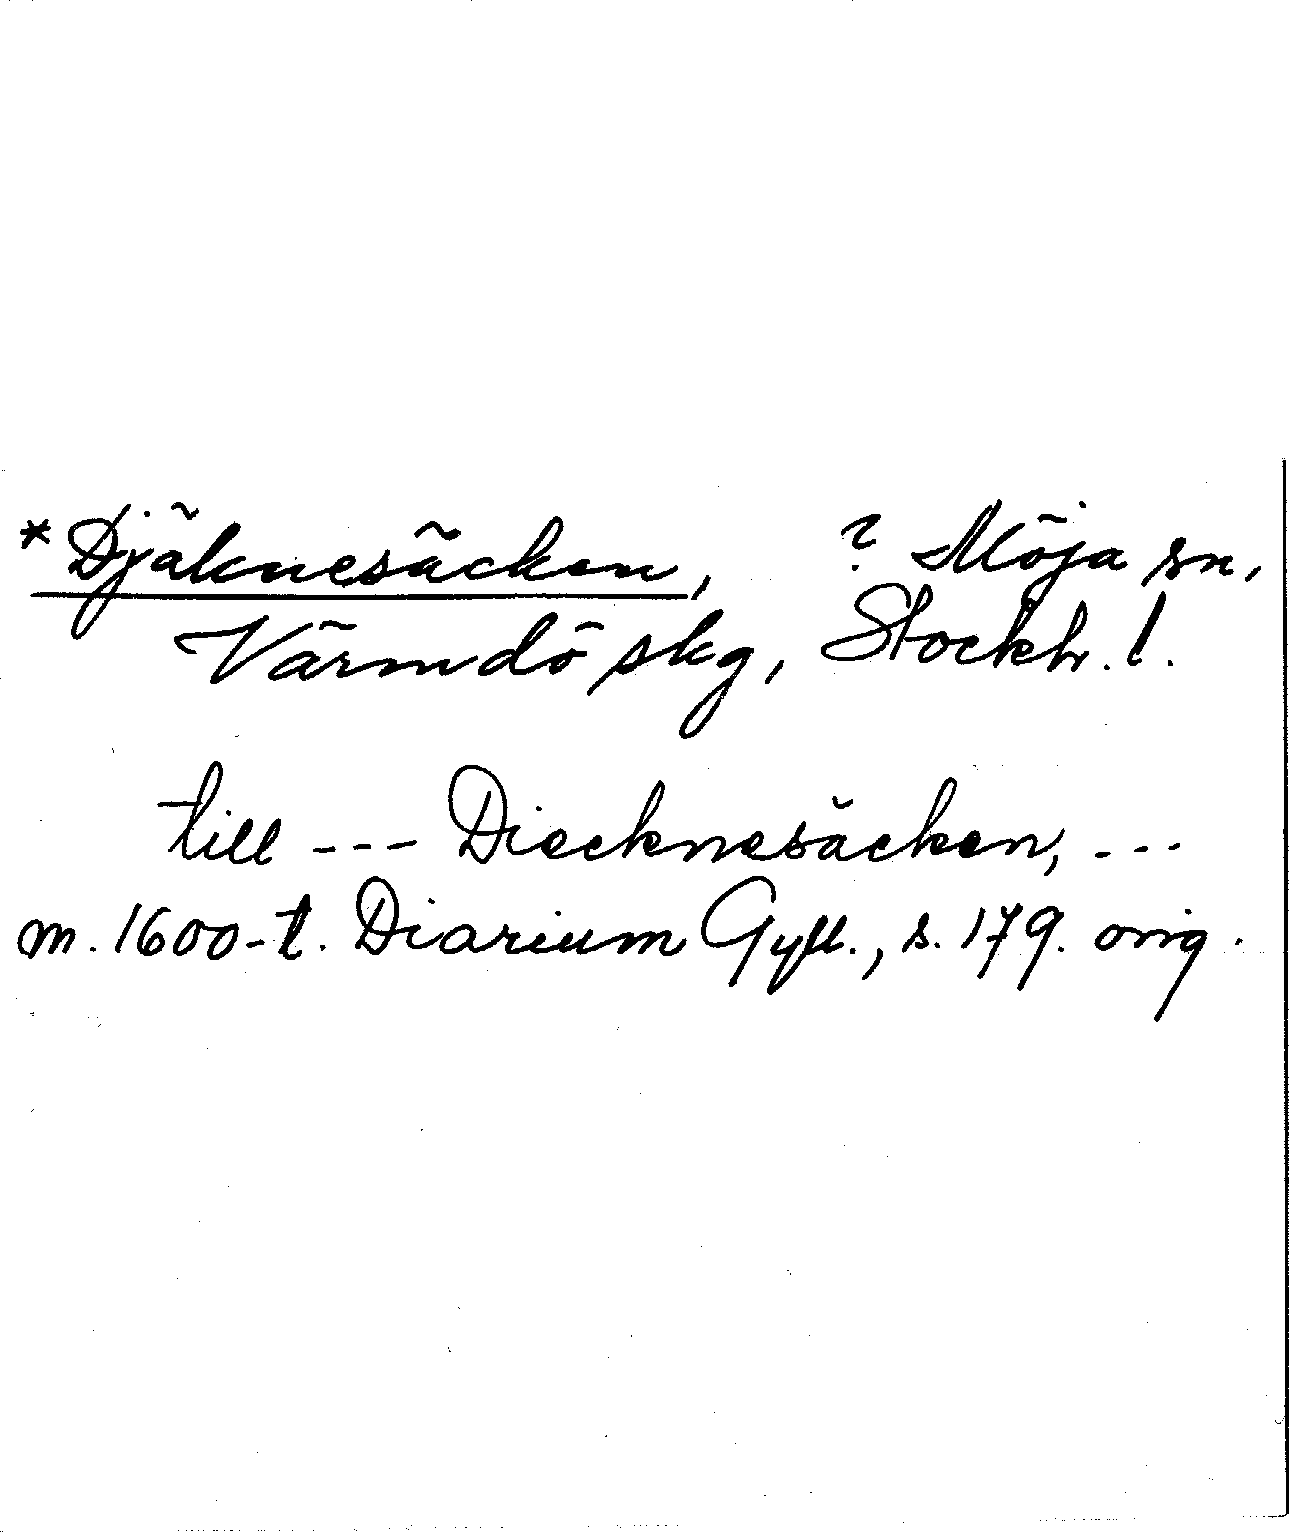 *Djäknesäcken, ? Möja sn,
Värmdö skg, Stockh. l.
till --- Diecknesäcken, ---
m. 1600-t. Diarium Gyll., s. 179. orig.